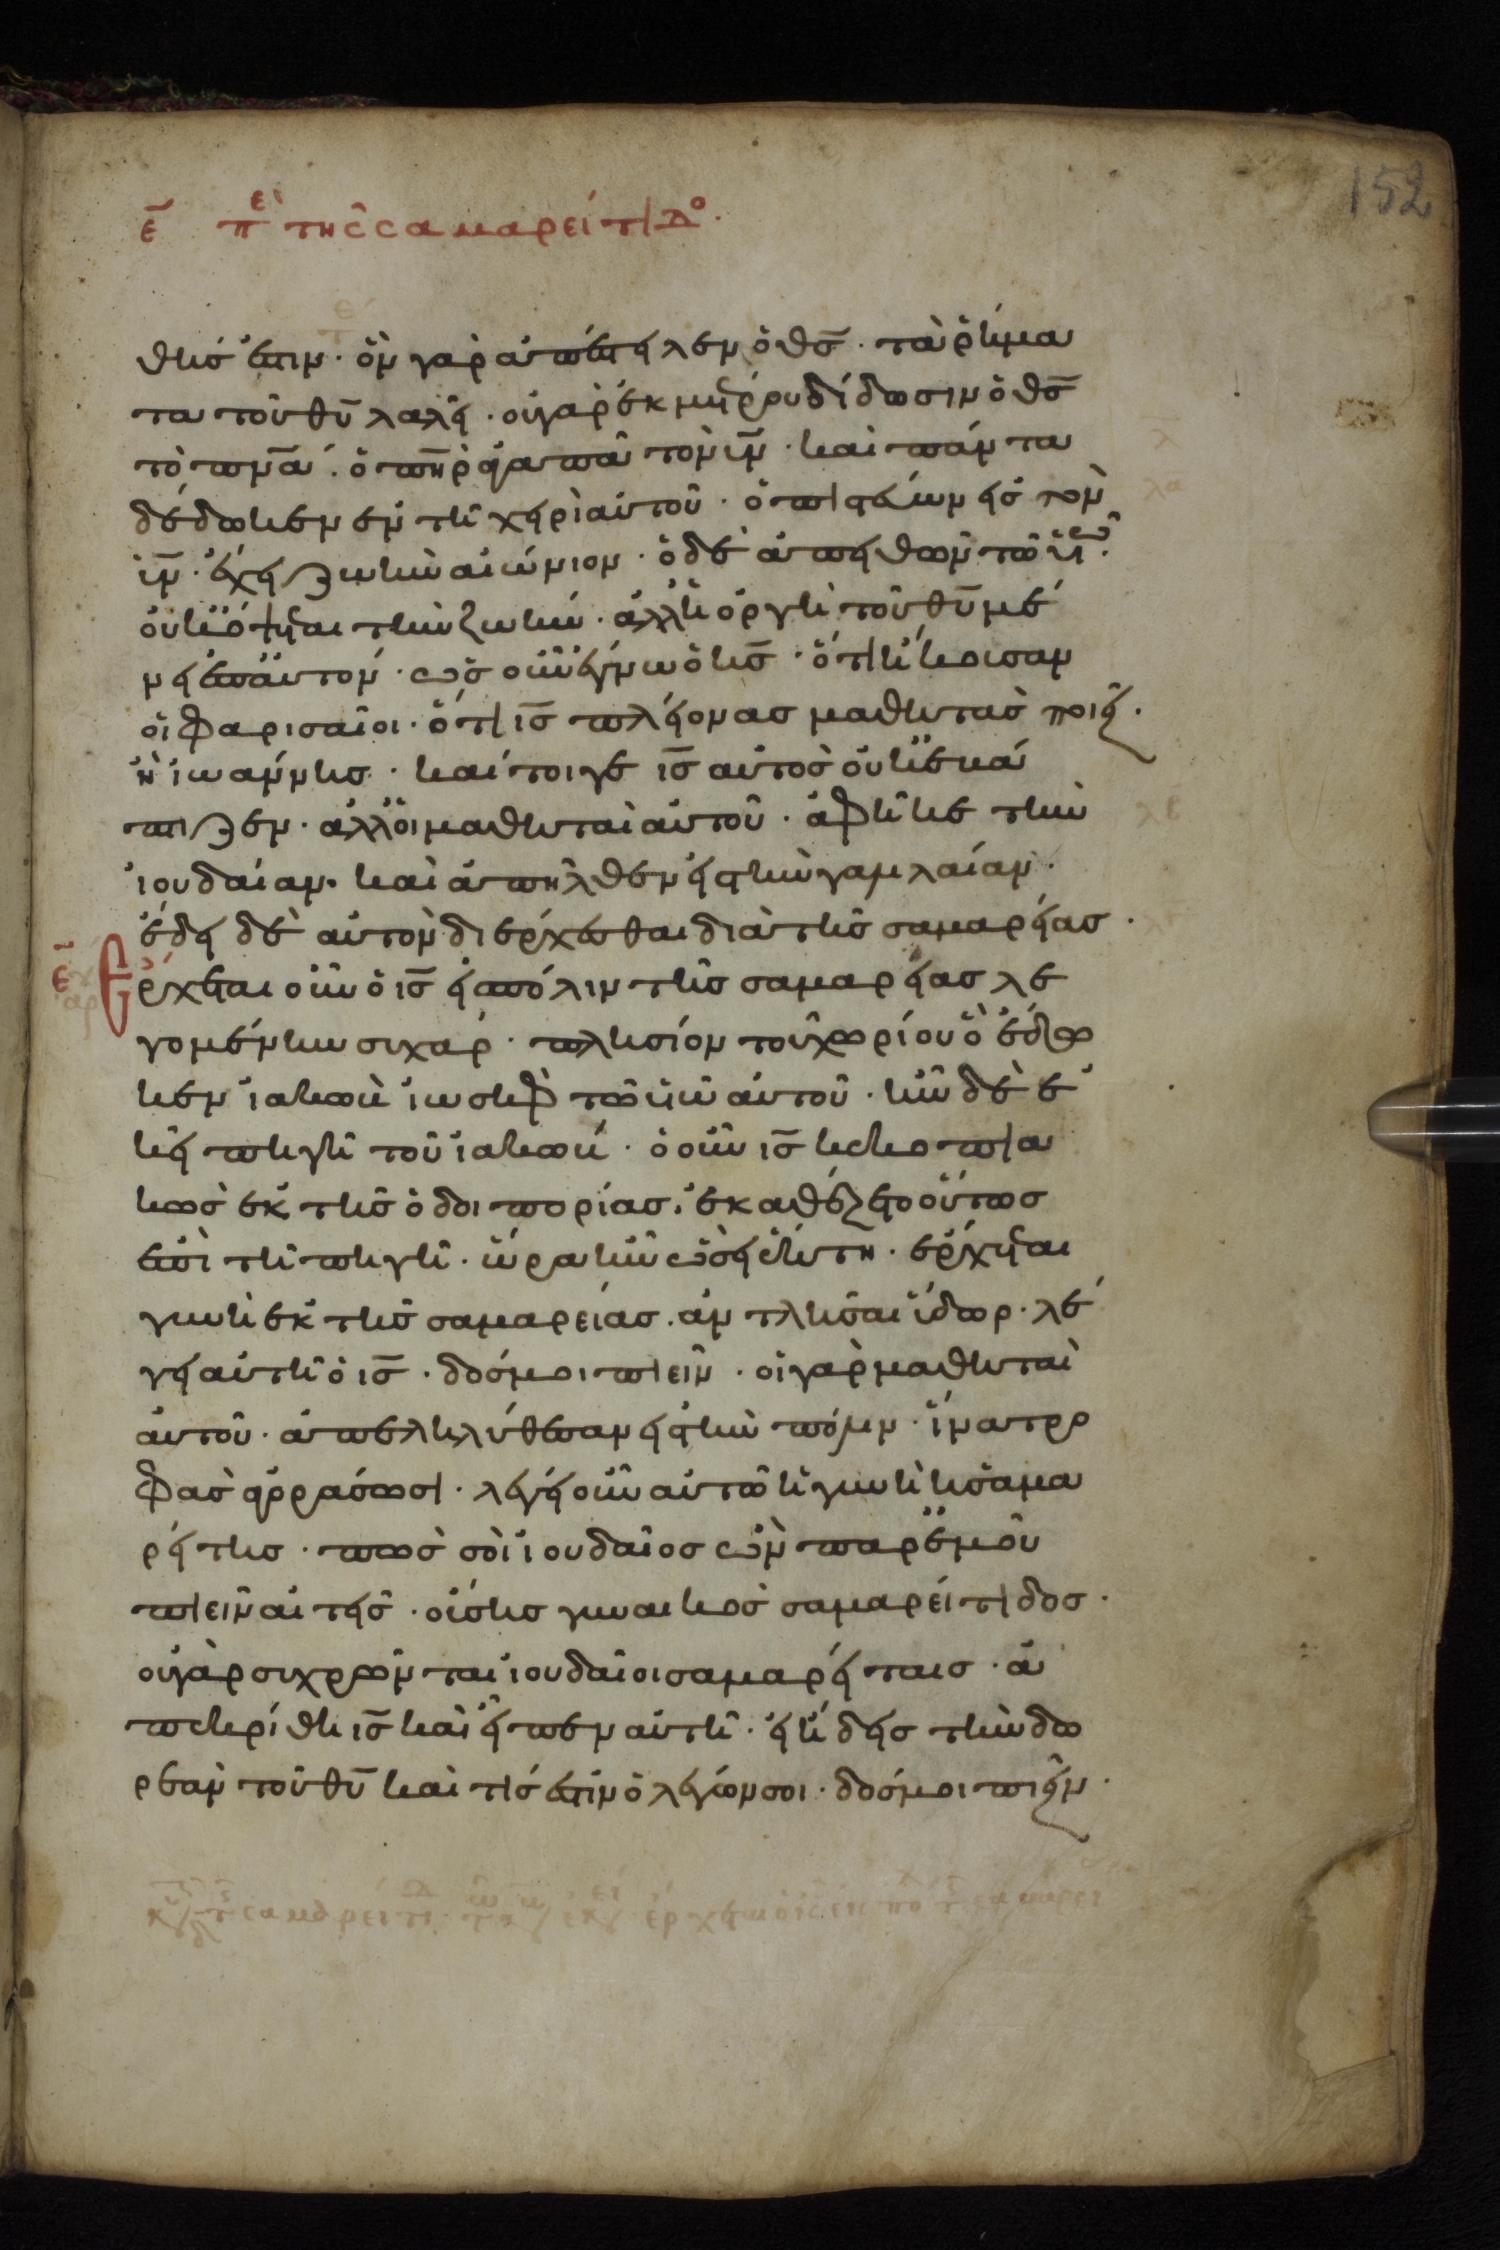 152
ε̄ πὲ τῆς σαμαρείτιδο.
θής ἐστιν · ὃν γὰρ ἀπέστειλεν ὁ θ̅ς̅ · τὰ ῥήμα
τα τοῦ θ̅υ̅ λαλεῖ · οὐ γὰρ ἐκ μέτρου δίδωσιν ὁ θ̅ς̅
τὸ π̅ν̅α̅ · ὁ π̅η̅ρ̅ ἀγαπᾶ τὸν υ̅ν̅ · καὶ πάντα
δέδωκεν ἐν τῆ χειρὶ αὐτοῦ · ὁ πιστεύων εἰς τὸν
υ̅ν̅ · ἔχει ζωὴν αἰώνιον · ὁ δὲ ἀπειθῶν τῶ υἱῶ ·
οὐκ ὄψεται τὴν ζωήν · ἀλλ' ἡ ὀργὴ τοῦ θ̅υ̅ μέ
νει ἐπ' αὐτόν · ὡς οὖν ἔγνω ὁ κ̅ς̅ · ὅτι ἤκουσαν
οἱ φαρισαῖοι · ὅτι ι̅ς̅ πλείονας μαθητὰς ποιεῖ ·
ἢ ἰωάννης · καίτοιγε ι̅ς̅ αὐτὸς οὐκ ἐβά
πτιζεν · ἀλλ' οἱ μαθηταὶ αὐτοῦ · ἀφῆκε τὴν
ἰουδαίαν · καὶ ἀπῆλθεν εἰς τὴν γαλιλαίαν ·
ἔδει δὲ αὐτὸν διέρχεσθαι διὰ τῆς σαμαρείας ·
ε̄ Ἔρχεται οὖν ὁ ι̅ς̅ εἰς πόλιν τῆς σαμαρείας λε
γομένην σιχάρ · πλησίον τοῦ χωρίου ὃ ἔδω
κεν ἰακὼβ ἰωσὴφ τῶ υἱῶ αὐτοῦ · ἦν δὲ ἐ
κεῖ πηγὴ τοῦ ἰακώβ · ὁ οὖν ι̅ς̅ κεκοπια
κὼς ἐκ τῆς ὁδοιπορίας · ἐκαθέζετο οὕτως
ἐπὶ τῆ πηγῆ · ὥρα ἦν ὡσεὶ ἕκτη · ἔρχεται
γυνὴ ἐκ τῆς σαμαρείας · ἀντλῆσαι ὕδωρ · λέ
γει αὐτῆ ὁ ι̅ς̅ · δός μοι πιεῖν · οἱ γὰρ μαθηταὶ
αὐτοῦ · ἀπεληλύθεσαν εἰς τὴν πόλιν · ἵνα τρο
φὰς ἀγοράσωσι · λέγει οὖν αὐτῶ ἡ γυνὴ ἡ σαμα
ρείτης · πῶς σὺ ἰουδαῖος ὢν παρ' ἐμοῦ
πιεῖν αἰτεῖς · οὔσης γυναικὸς σαμαρείτιδος ·
οὐ γὰρ συχρῶνται ἰουδαῖοι σαμαρείταις · ἀ
πεκρίθη ι̅ς̅ καὶ εἶπεν αὐτῆ · εἰ ἤδεις τὴν δω
ρεὰν τοῦ θ̅υ̅ καὶ τίς ἐστιν ὁ λέγων σοι · δός μοι πιεῖν ·